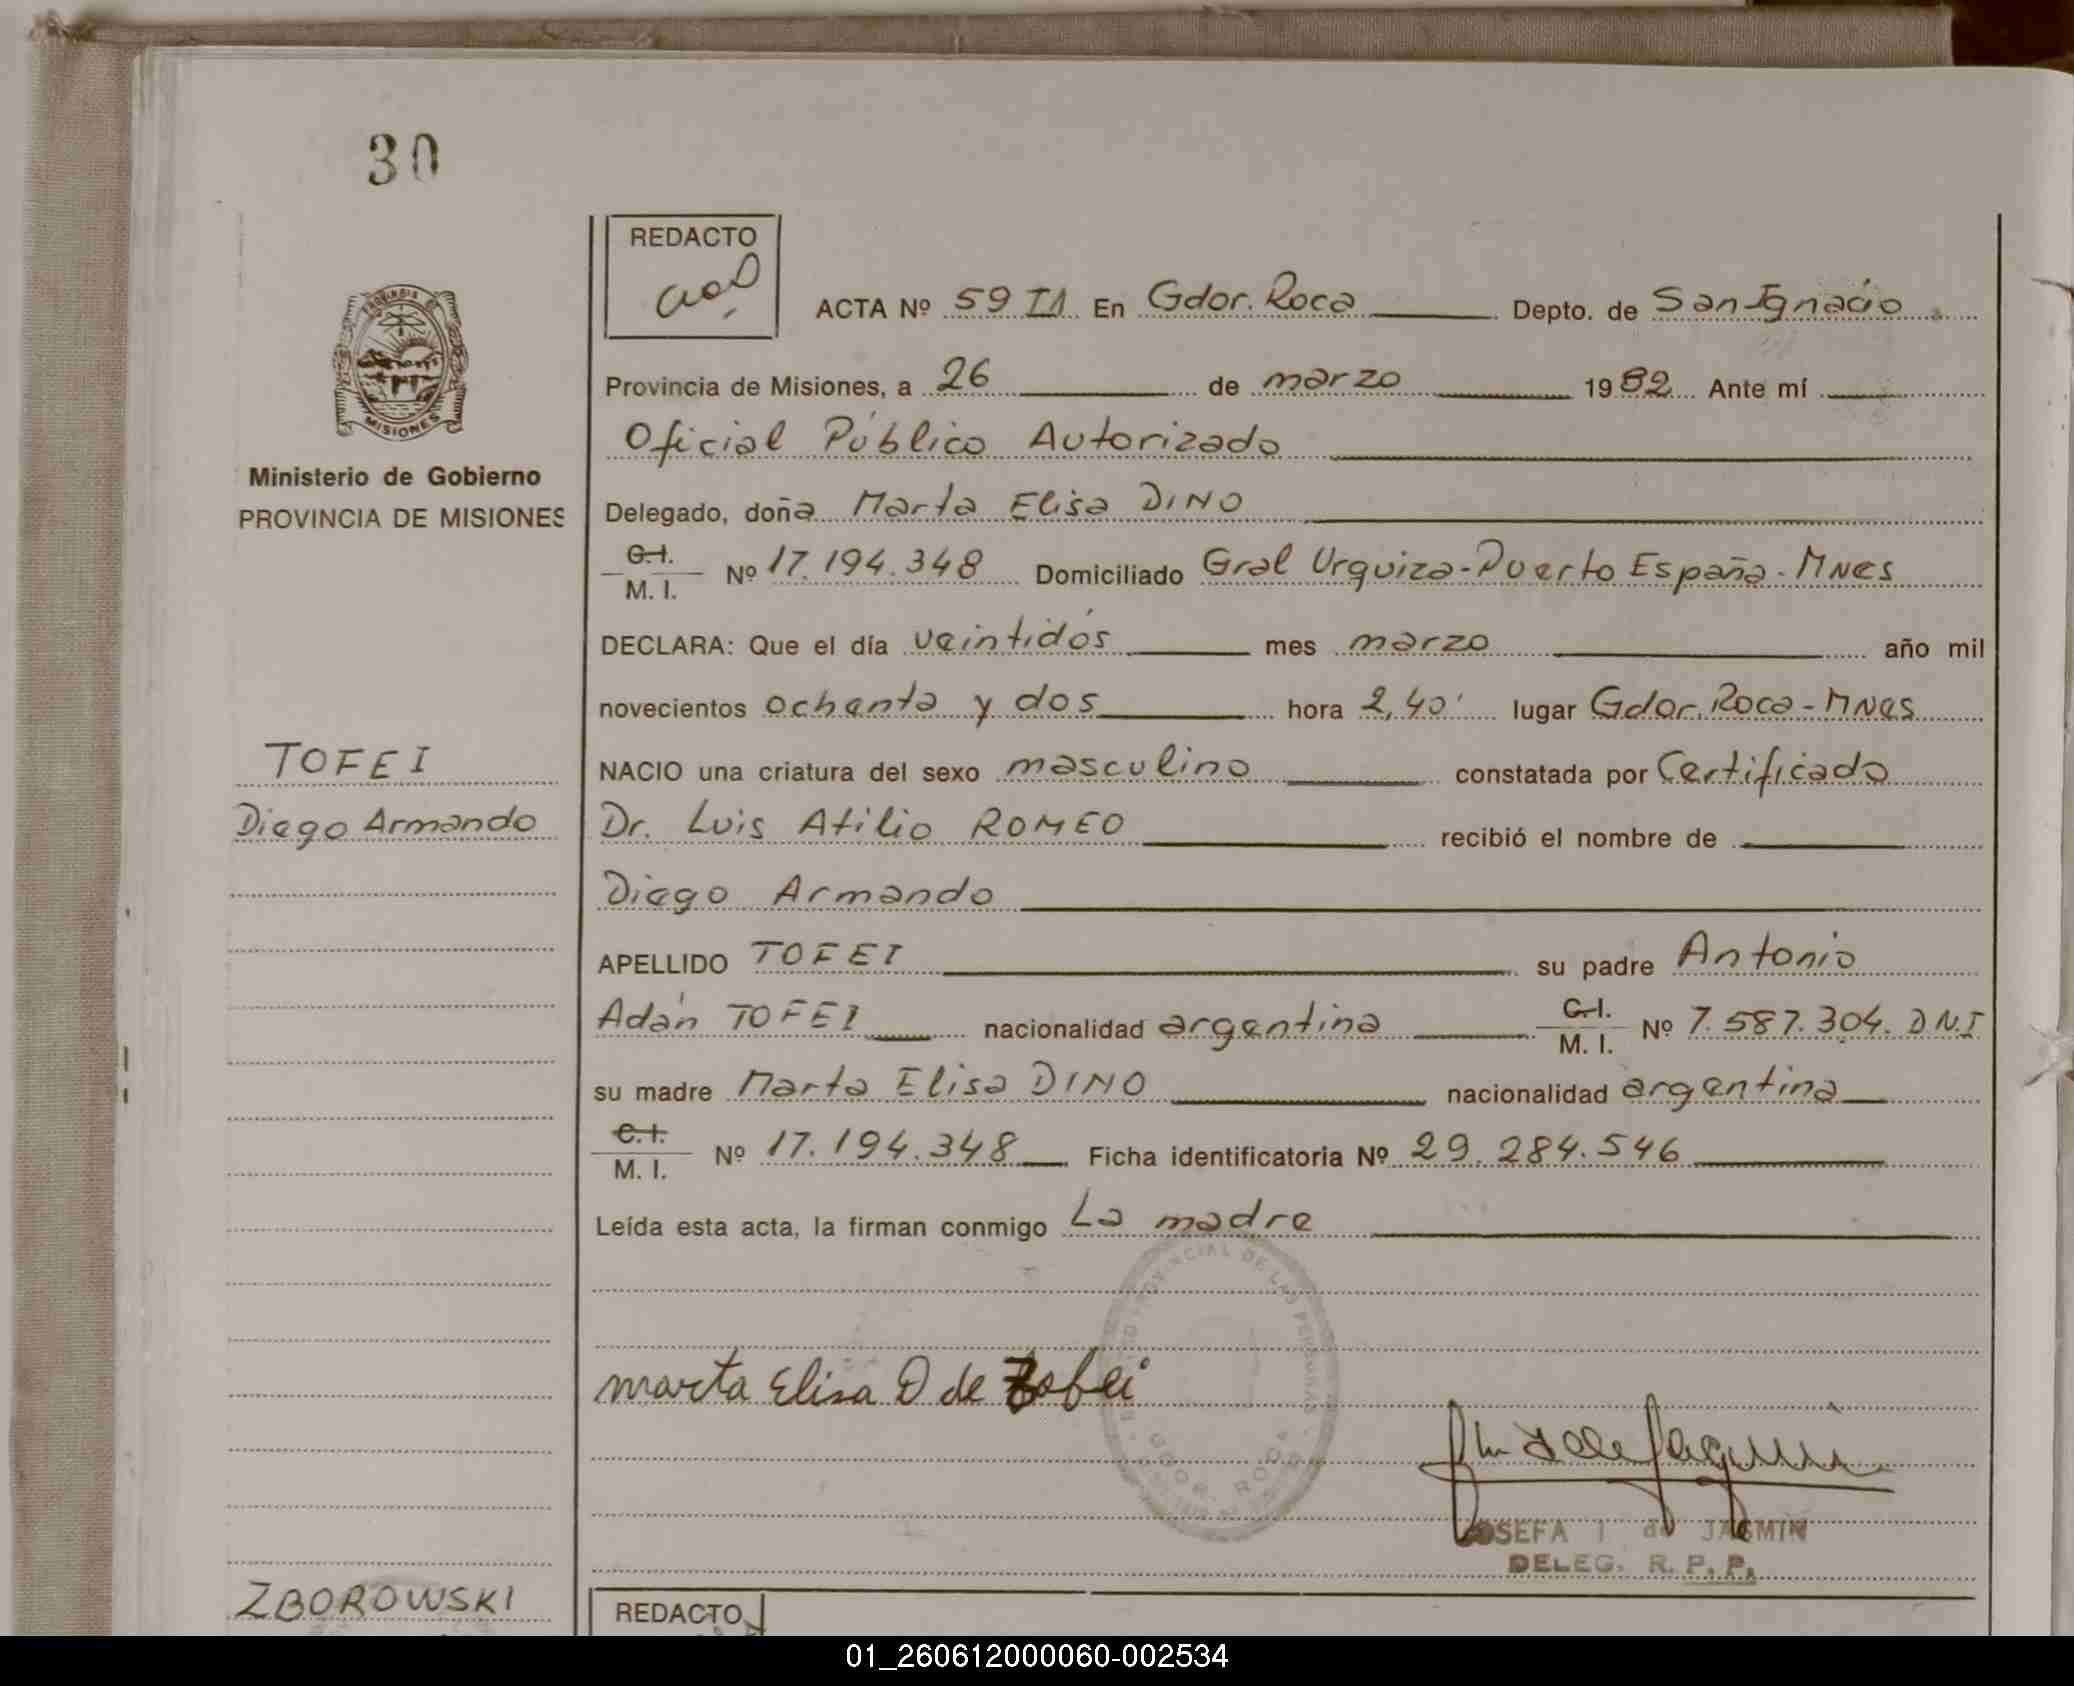 30
REDACTO
ACTA Nº 59 T1 En Gdor. Roca Depto. de San Ignacio
Provincia de Misiones, a 26 de marzo 1982 Ante mí
Oficial Público Autorizado
Ministerio de Gobierno
PROVINCIA DE MISIONES
Delegado, doña Marta Elisa DINO
C.I.
M. I. Nº 17.194.348 Domiciliado Gral Urquiza-Puerto España-Mnes
DECLARA: Que el día veintidós mes marzo año mil
novecientos ochenta y dos hora 2,40' lugar Gdor. Roca-Mnes
TOFEI
NACIO una criatura del sexo masculino constatada por Certificado
Diego Armando
Dr. Luis Atilio ROMEO recibió el nombre de
Diego Armando
APELLIDO TOFEI su padre Antonio
Adán TOFEI nacionalidad argentina C.I. M. I. Nº 7.587.304. D N.I
su madre Marta Elisa DINO nacionalidad argentina
C.I.
M. I. Nº 17.194.348 Ficha identificatoria Nº 29.284.546
Leída esta acta, la firman conmigo La madre
marta Elisa D de Tofei
JOSEFA I de JACMIN
DELEG. R. P. P.
ZBOROWSKI
REDACTO
PROVINCIA
MISIONES
REGISTRO PROVINCIAL DE LAS PERSONAS
GDOR. ROCA
01_260612000060-002534